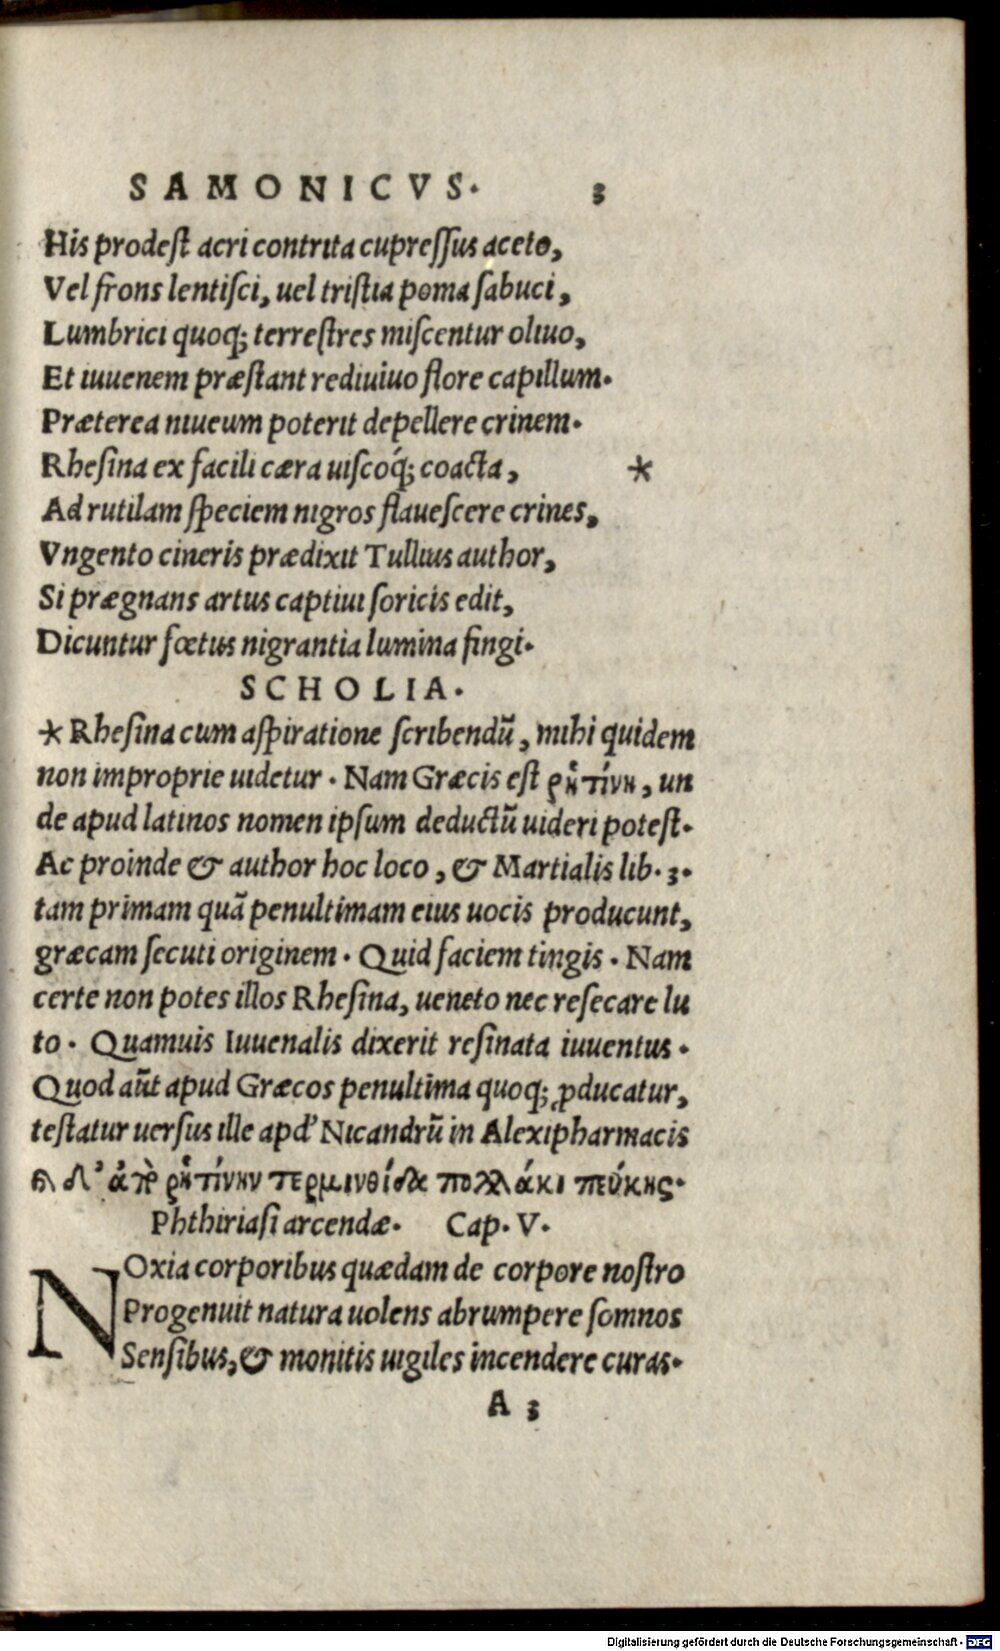 SAMONICVS. 3
His prodeſt acri contrita cupreſſus aceto,
Vel frons lentiſci, uel triſtia poma ſabuci,
Lumbrici quoq; terreſtres miſcentur oliuo,
Et iuuenem præſtant rediuiuo flore capillum.
Præterea niueum poterit depellere crinem.
Rheſina ex facili cæra uiſcoq́; coacta, *
Ad rutilam ſpeciem nigros flaueſcere crines,
Vngento cineris prædixit Tullius author,
Si prægnans artus captiui ſoricis edit,
Dicuntur fœtus nigrantia lumina fingi.
SCHOLIA.
* Rheſina cum aſpiratione ſcribendū, mihi quidem
non improprie uidetur. Nam Græcis eſt ῥητίνη, un
de apud latinos nomen ipſum deductū uideri poteſt.
Ac proinde & author hoc loco, & Martialis lib. 3.
tam primam quā penultimam eius uocis producunt,
græcam ſecuti originem. Quid faciem tingis. Nam
certe non potes illos Rheſina, ueneto nec reſecare lu
to. Quamuis Iuuenalis dixerit reſinata iuuentus.
Quod aūt apud Græcos penultima quoq; ꝓducatur,
teſtatur uerſus ille apd' Nicandrū in Alexipharmacis
ῥητίνην τερμινθίδα πολλάκι πεύκης.
Phthiriaſi arcendæ. Cap. V.
NOxia corporibus quædam de corpore noſtro
Progenuit natura uolens abrumpere ſomnos
Senſibus, & monitis uigiles incendere curas.
A 3
Digitalisierung gefördert durch die Deutsche Forschungsgemeinschaft - DFG